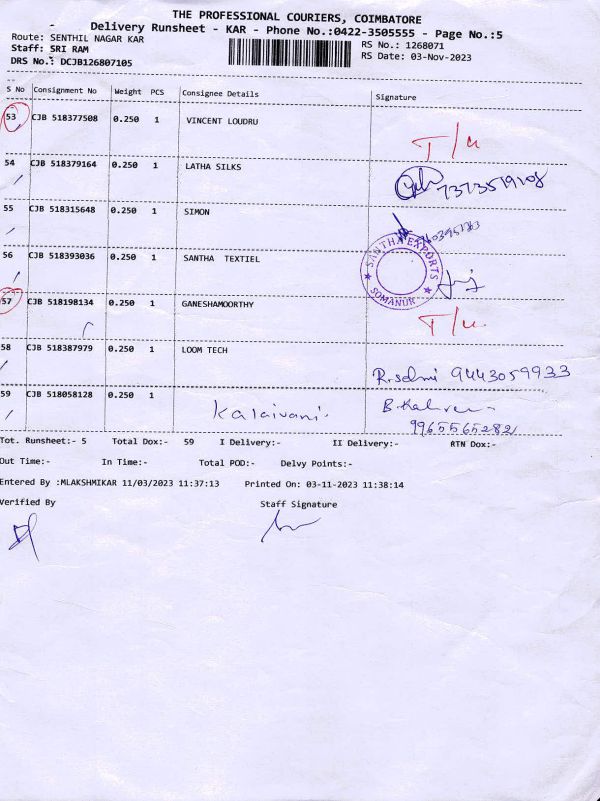 THE PROFESSIONAL COURIERS, COIMBATORE
Delivery Runsheet - KAR - Phone No.:0422-3505555 - Page No.:5
Route: SENTHIL NAGAR KAR
RS No.: 1268071
Staff: SRI RAM
RS Date: 03-Nov-2023
DRS No.: DCJB126807105
S No Consignment No Weight PCS Consignee Details Signature
53 CJB 518377508 0.250 1 VINCENT LOUDRU T/U
54 CJB 518379164 0.250 1 LATHA SILKS 7373519108
55 CJB 518315648 0.250 1 SIMON
56 CJB 518393036 0.250 1 SANTHA TEXTIEL SANTHA EXPORTS SOMANUR
57 CJB 518198134 0.250 1 GANESHAMOORTHY T/U.
58 CJB 518387979 0.250 1 LOOM TECH R. selmi 9443059933
59 CJB 518058128 0.250 1 Kalaivani. 9965565282
Tot. Runsheet:- 5 Total Dox:- 59 I Delivery:- II Delivery:- RTN Dox:-
Out Time:- In Time:- Total POD:- Delvy Points:-
Entered By :MLAKSHMIKAR 11/03/2023 11:37:13 Printed On: 03-11-2023 11:38:14
Verified By Staff Signature